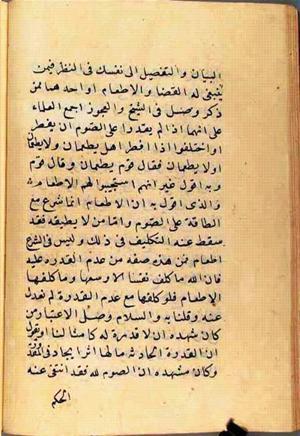 البيان والتفصيل الى نفسك فى النظر فيمن
ينبغى له القضا والاطعام او احدهما ممن
ذكر وصل فى الشيخ والعجوز اجمع العلماء
على انهما اذا لم يقدرا على الصوم ان يفطرا
واختلفوا اذا افطرا هل يطعمان ولا يطعمان
اولا يطعمان فقال قوم يطعمان وقال قوم
وبه اقول غير انهم استحبوا لهم الاطعام
والذى اقول به ان الاطعام انما شرع مع
الطاقة على الصوم واما من لا يطيقه فقد
سقط عنه التكليف فى ذلك وليس فى الشرع
اطعام من هذه صفه من عدم القدره عليه
فان الله ما كلف نفسا الا وسعها وما كلفها
الاطعام فلو كلفها مع عدم القدرة لم نعدل
عنه وقلنا به والسلام وصل الاعتبار من
كان مشهده ان لا قدرة له كامثالنا او يقول
ان القدرة الحادثة ما لها اثر ايجاد فى المقدور
وكان مشهده ان الصوم لله فقد انتفى عنه
الحكم